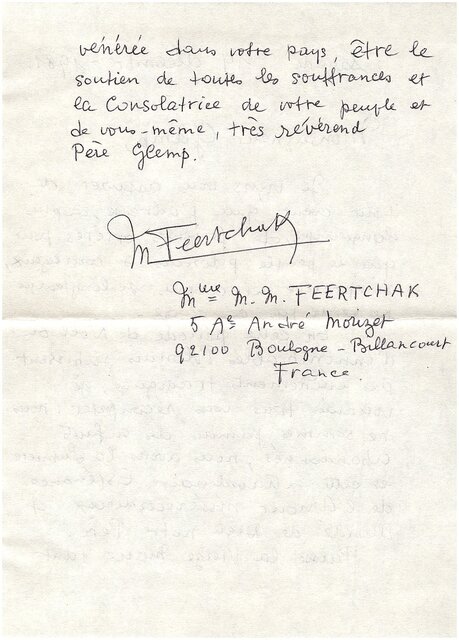 vénérée dans votre pays, être le
soutien de toutes les souffrances et
la Consolatrice de votre peuple et
de vous-même, très révérend
Père Glemp.
M Feertchak
Mme M. M. FEERTCHAK
5 Ae André Morizet
92100 Boulogne-Billancourt
France.